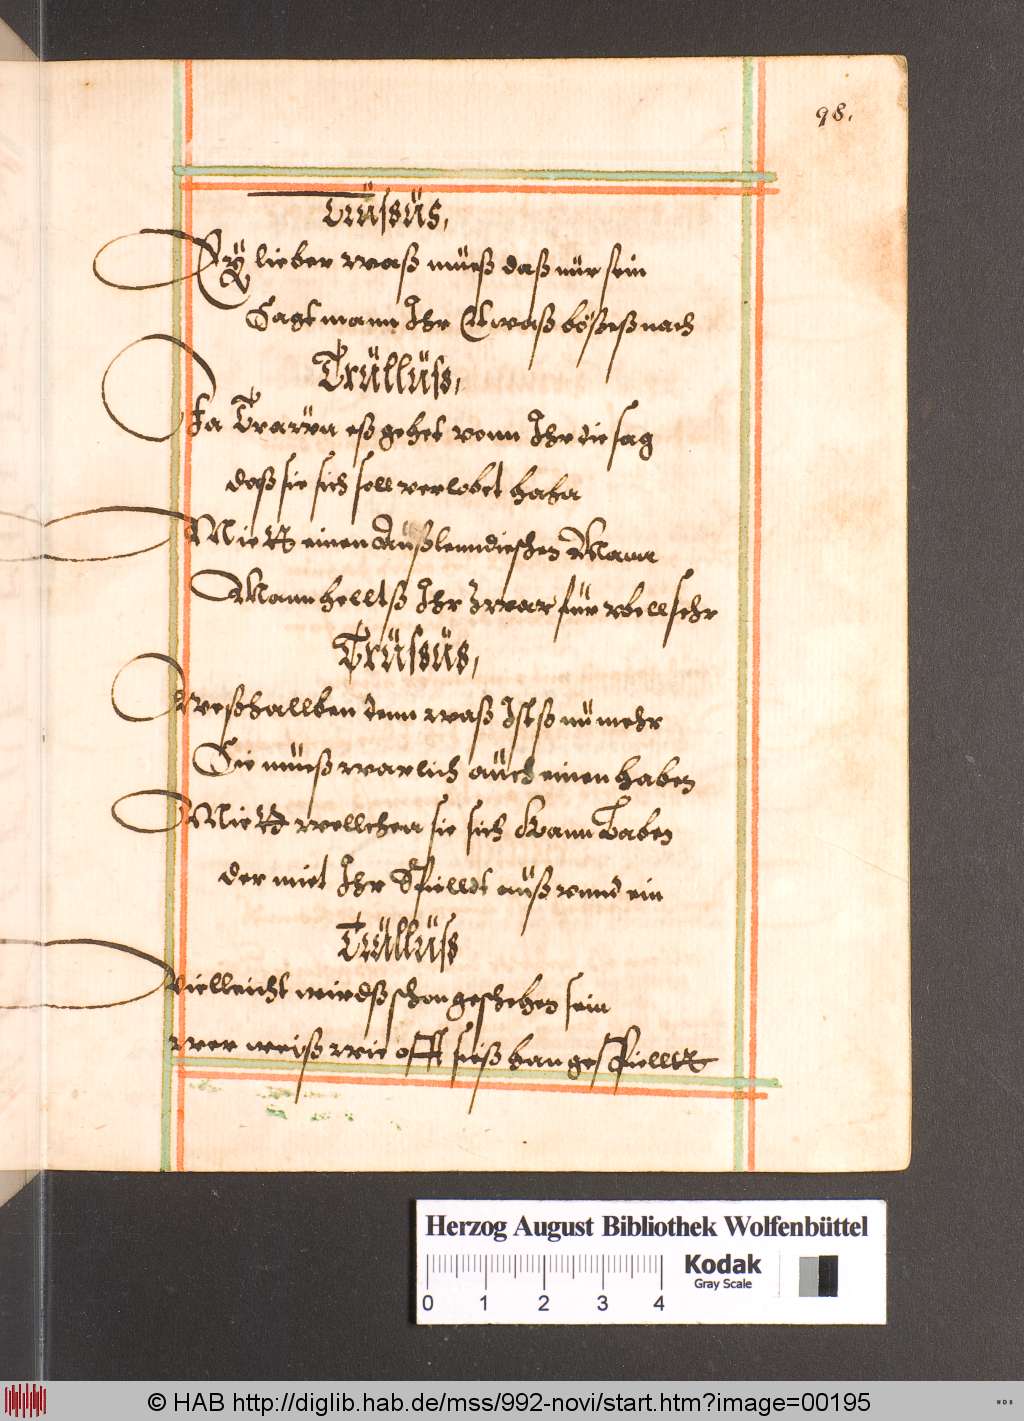 98.
Trüsüs,
Ey lieber waß müeß daß nür sein
Sagt mann Ihr Etwaß bößeß nach
Trüllüß,
Ja Trarra eß gehet vonn Ihr die sag
daß sie sich soll verlobet haha
Mie tt einen Außlenndieschen Mann
Mann helltß Ihr Zwar für vbell sehr
Trüsüs,
Weßhallben denn waß Istß nü mehr
Sie müeß warlich aüch einen haben
Mie tt wellchen sie sich kann Laben
der miet Ihr Spielldt aüß vnnd ein
Trüllüß
Vielleicht wirdß schon geschehen sein
wer weiß wie offt sieß han gespiellt
Herzog August Bibliothek Wolfenbüttel
Kodak
Gray Scale
0 1 2 3 4
© HAB http://diglib.hab.de/mss/992-novi/start.htm?image=00195